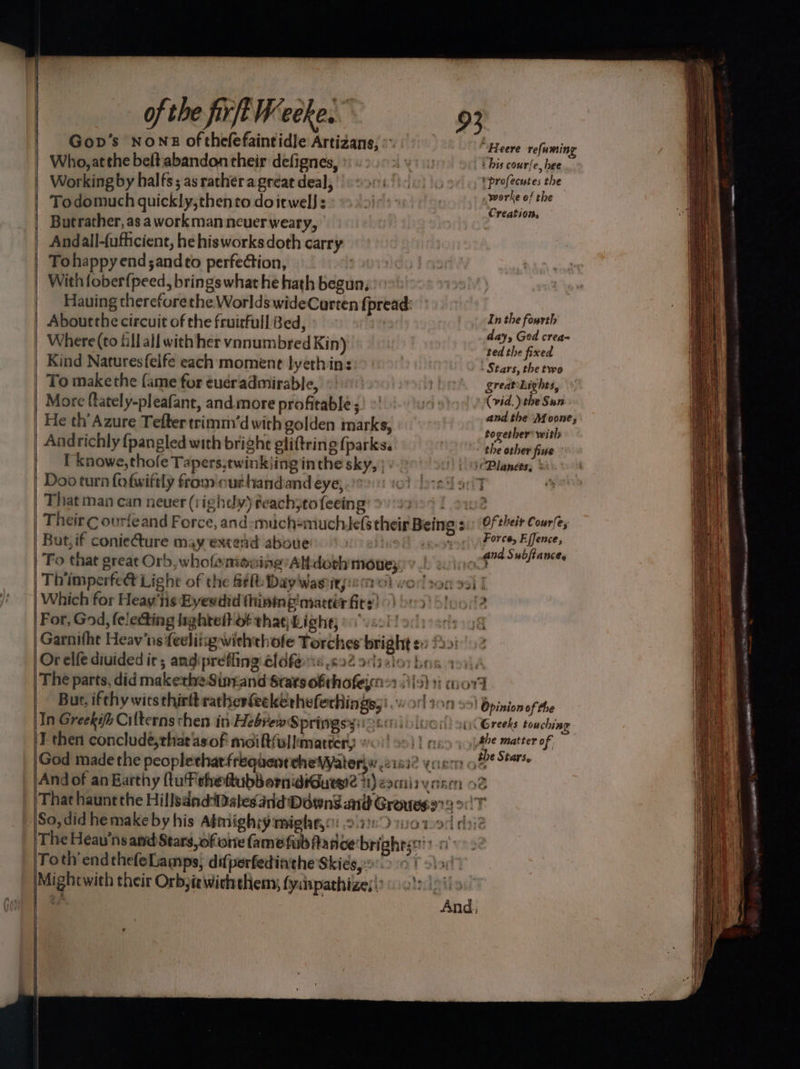 of the first Weeke. 93
God's none of these faint idle Artizans,
Who, at the best abandon their designes,
Working by halfs; as rather a great deal,
To do much quickly, then to do it well:
But rather, as a workman neuer weary,
And all-sufficient, he his works doth carry
To happy end; and to perfection,
With sober speed, brings what he hath begun.
Hauing therefore the Worlds wide Curten spread
About the circuit of the fruitfull Bed,
Where (to fill all with her vnnumbred Kin)
Kind Natures selfe each moment lyeth in:
To make the same for euer admirable,
More stately-pleasant, and more profitable;
He th' Azure Tester trimm'd with golden marks,
And richly spangled with bright glistring sparks.
I knowe, those Tapers, twinkling in the sky,
Doo turn so swiftly from our hand and eye,
That man can neuer (rightly) reach, to seeing
Their Course and Force, and much-much less their Being:
But, if coniecture may extend aboue
To that great Orb, whose mouing All doth moue,
Th'imperfect Light of the first Day was it;
Which for Heav'ns Eyes did shining matter fit:
For, God, selecting lightest of that Light,
Garnisht Heav'ns seeling with those Torches bright:
Or else diuided it; and pressing close
The parts, did make the Sun and Stars of those.
But, if thy wits thirst rather seek these things,
In Greekish Cisterns then in Hebrew Springs;
I then conclude, that as of moist-full matter,
God made the people that frequent the Water;
And of an Earthy stuff the stubborn
That haunt the Hills and Dales and Downs and Groues:
So, did he make by his Almighty might,
The Heau'ns and Stars, of one same substance bright;
To th' end these Lamps, dispersed in the Skies,
Might with their Orb, it with them, sympathize:
And,
Heere resuming
this course, hee
prosecutes the
worke of the
Creation.
In the fourth
day, God crea-
ted the fixed
Stars, the two
great Lights,
(vid.) the Sun
and the Moone,
together with
the other fiue
Planets.
Of their Course,
Force, Essence,
and Substance.
Opinion of the
Greeks touching
the matter of
the Stars.